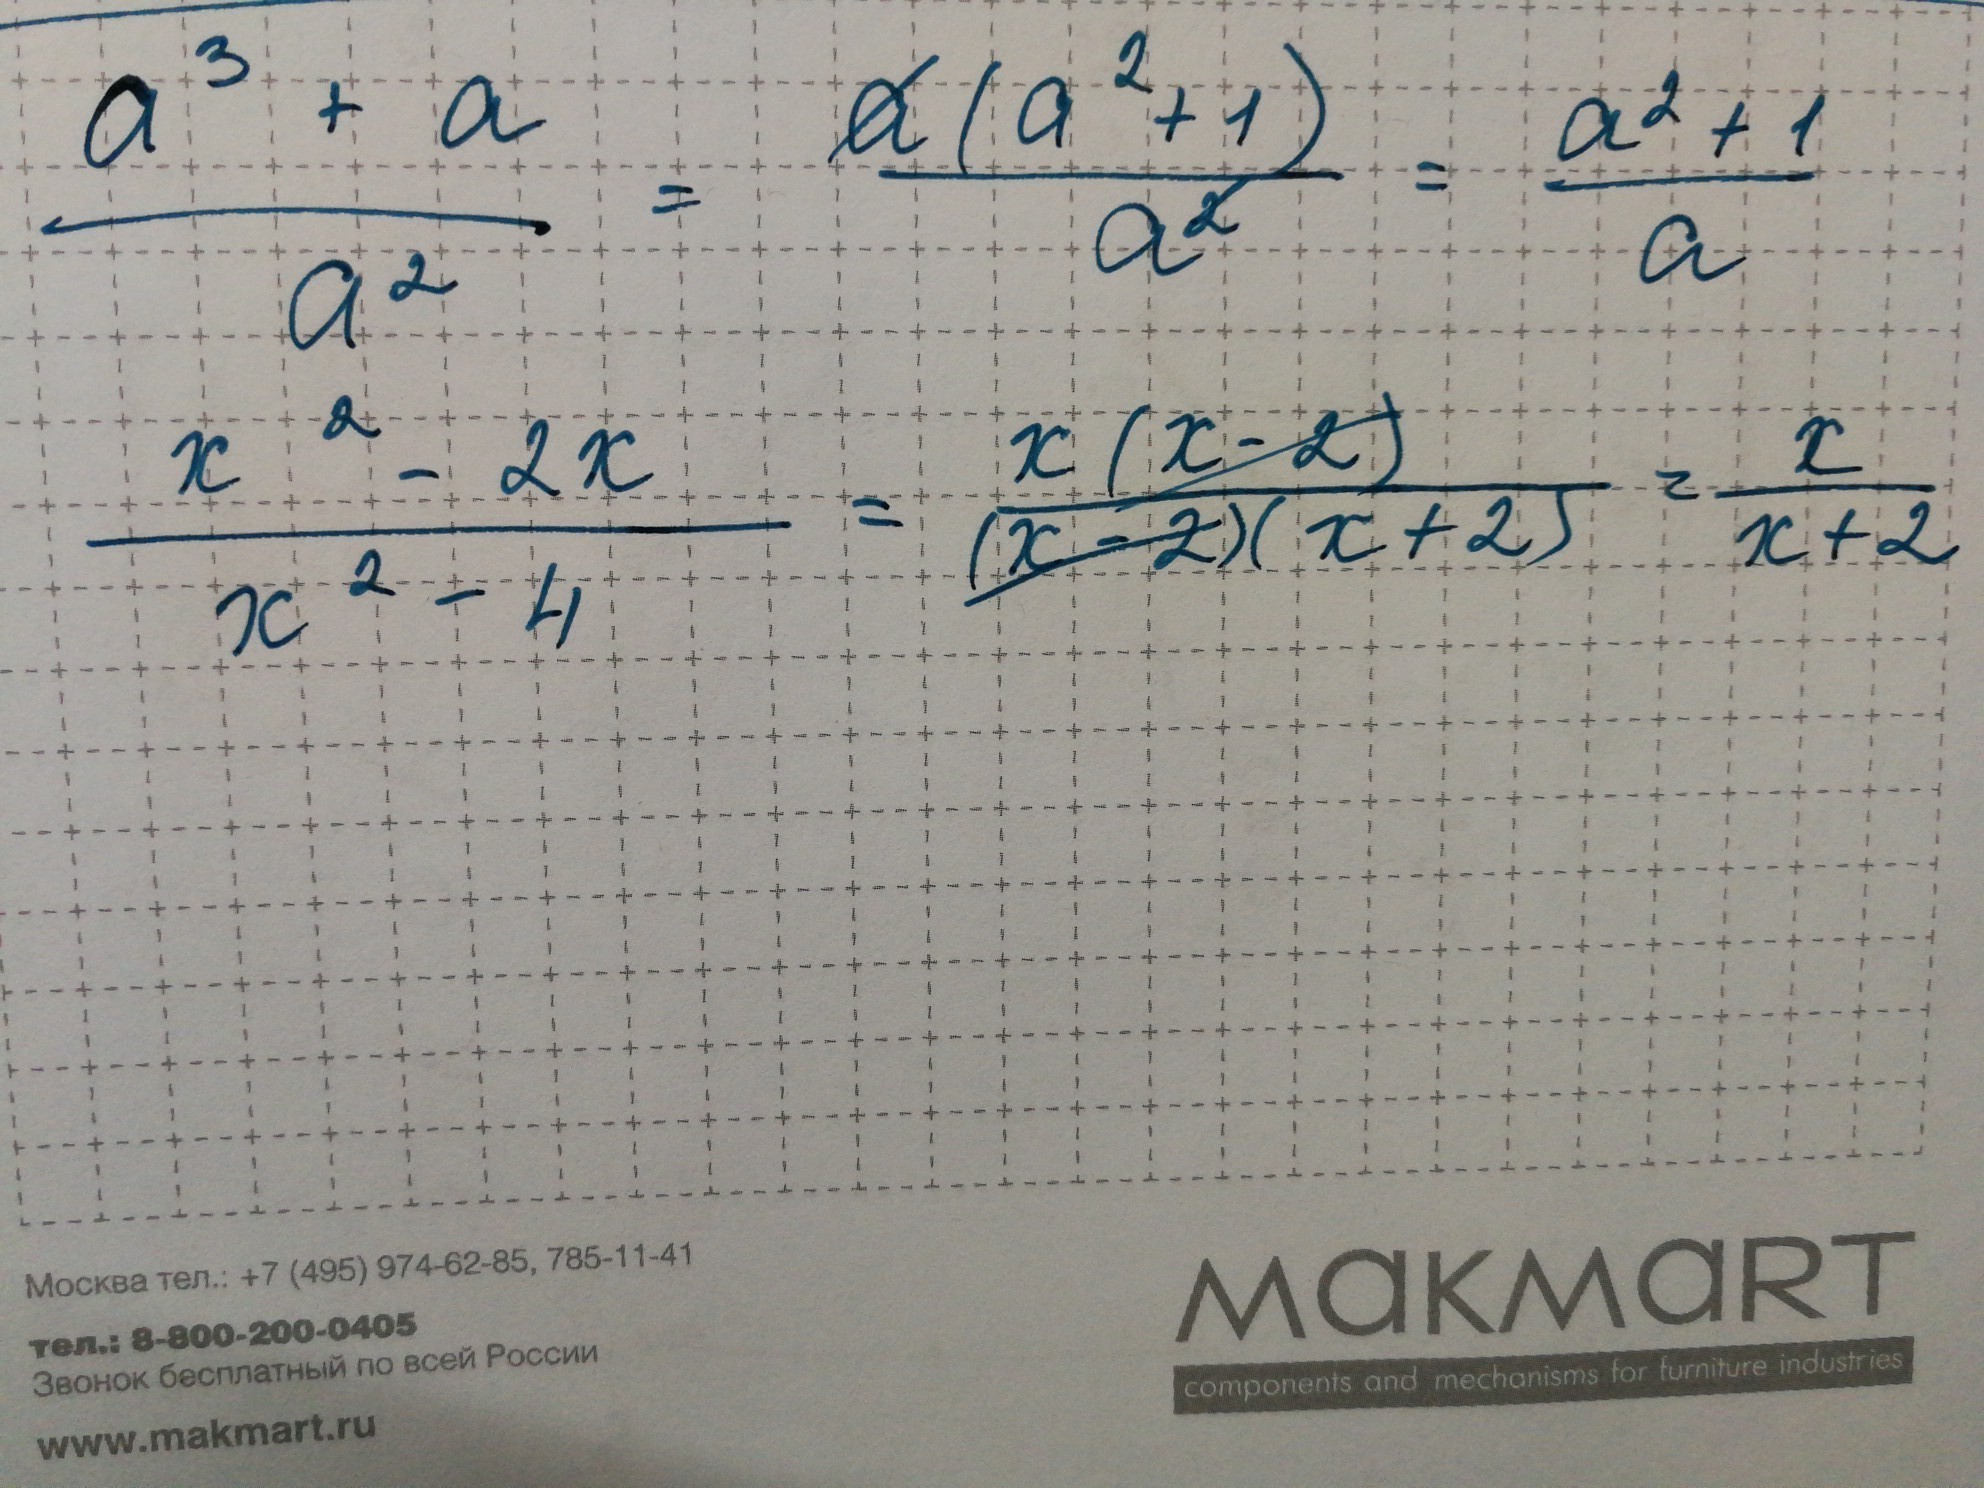 a³ + a / a² = a(a² + 1) / a² = a² + 1 / a
x² - 2x / x² - 4 = x(x - 2) / (x - 2)(x + 2) = x / x + 2
Москва тел.: +7 (495) 974-62-85, 785-11-41
тел.: 8-800-200-0405
Звонок бесплатный по всей России
www.makmart.ru
MAKMART
components and mechanisms for furniture industries